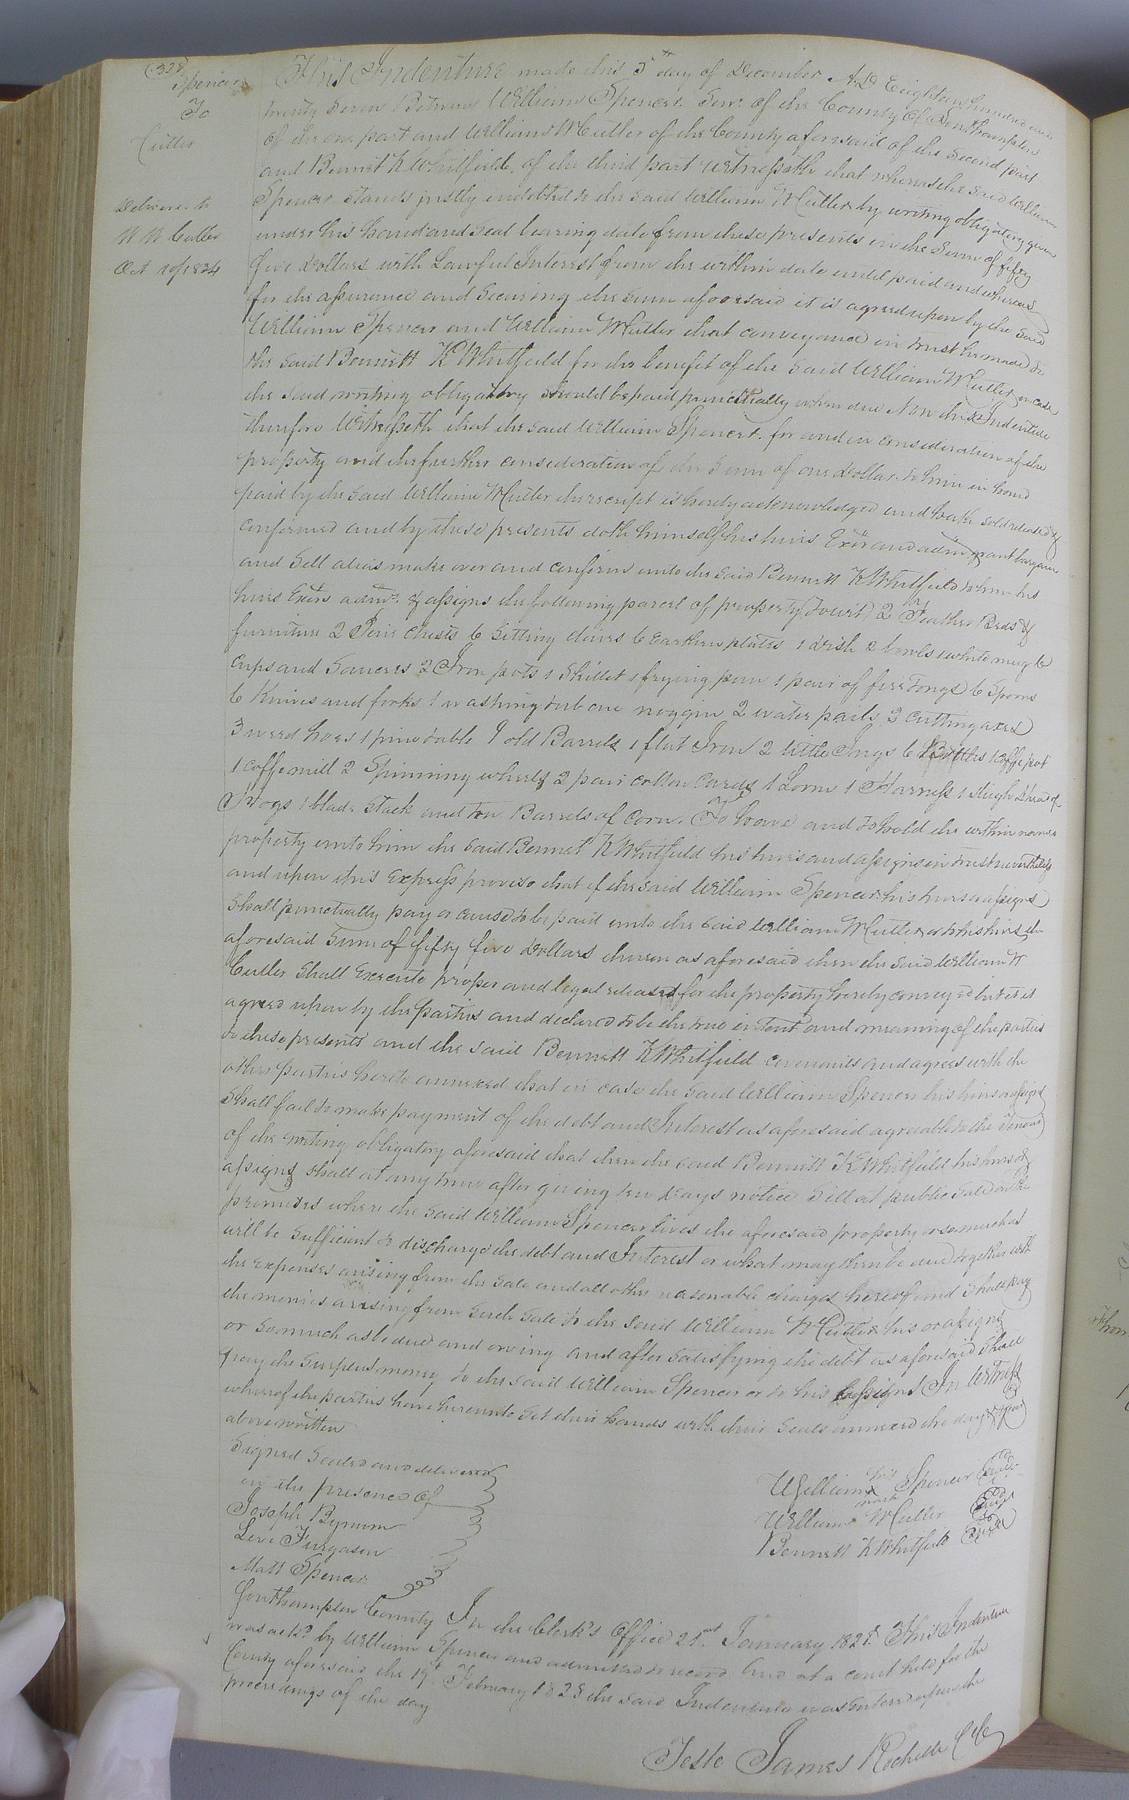 (328)
Spencer
To
Cutler
Delivered to
W W Cutler
Oct 10th 1834
This Indenture made this 5th day of December A.D Eighteen hundred and
twenty seven Between William Spencer Senr of the County of Southampton
of the one part and William W Cutler of the County aforesaid of the second part
and Bennett K Whitfield of the third part witnesseth that whereas the said William
Spencer stands justly indebted to the said William W Cutler by writing obligatory given
under his hand and seal bearing date from these presents in the sum of fifty
five Dollars with Lawful Interest from the within date until paid and whereas
for the assurance and securing the sum aforesaid it is agreed upon by the said
William Spencer and William W Cutler that conveyance in trust be made to
the said Bennett K Whitfield for the benefit of the said William W Cutler in case
the said writing obligatory should be paid punctually when due Now this Indenture
therefore Witnesseth that the said William Spencer for and in consideration of the
property and the further consideration of the sum of one Dollar to him in hand
paid by the said William W Cutler the receipt is hereby acknowledged and hath sold released &
confirmed and by these presents doth himself his heirs Exrs and admrs grant bargain
and sell alien make over and confirm unto the said Bennett K Whitfield to him his
heirs Exrs admrs & assigns the following parcel of property (Towit) 2 Feather Beds &
furniture 2 Pine Chests 6 Sitting chairs 6 Earthen plates 1 dish 2 bowls 1 white mug 6
cups and saucers 2 Iron pots 1 Skillet 1 frying pan 1 pair of fire Tongs 6 Spoons
6 Knives and forks 1 washing tub one noggin 2 water pails 3 cutting axes
3 weed hoes 1 pine table 9 old Barrels 1 flat Iron 2 little Jugs 6 Bottles 1 coffe pot
1 coffe mill 2 Spinning wheels 2 pair cotton Cards 1 Loom 1 Harness 1 Slugh 2 head of
Hogs 1 blade stack and ten Barrels of Corn. To have and to hold the within named
property unto him the said Bennet K Whitfield his heirs and assigns in trust nevertheless
and upon this Express proviso that if the said William Spencer his heirs or assigns
shall punctually pay or cause to be paid unto the said William W Cutler or to his heirs the
aforesaid sum of fifty five Dollars thereon as aforesaid then the said William W
Cutler shall Execute proper and legal releases for the property hereby conveyed but it is
agreed upon by the parties and declared to be the true intent and meaning of the parties
to these presents and the said Bennett K Whitfield covenants and agrees with the
other parties hereto annexed that in case the said William Spencer his heirs or assigns
shall fail to make payment of the debt and Interest as aforesaid agreeable to the Tenour
of the writing obligatory aforesaid that then the said Bennett K Whitfield his heirs or
assigns shall at any time after giving ten days notice Sell at public sale on the
premises where the said William Spencer lives the aforesaid property or so much as
will be sufficient to discharge the debt and Interest or what may then be due together with
the expenses arising from the sale and all other reasonable charges hereof and shall pay
the monies arising from such sale to the said William W Cutler his or assigns
or so much as be due and owing and after satisfying the debt as aforesaid shall
pay the surplus money to the said William Spencer or to his assigns In Witness
whereof the parties have hereunto set their hands with their seals annexed the day & year
above written
Signed Sealed and delivered
in the presence of
Joseph Bynum
Levi Furgason
Matt Spencer
William his X mark Spencer Seal
William W Cutler Seal
Bennett K Whitfield Seal
Southampton County In the Clerk's Office 21st January 1828. This Indenture
was ackd by William Spencer and admitted to record And at a court held for the
County aforesaid the 19th February 1828 the said Indenture was entered upon the
proceedings of the day
Teste James Rochelle Clk